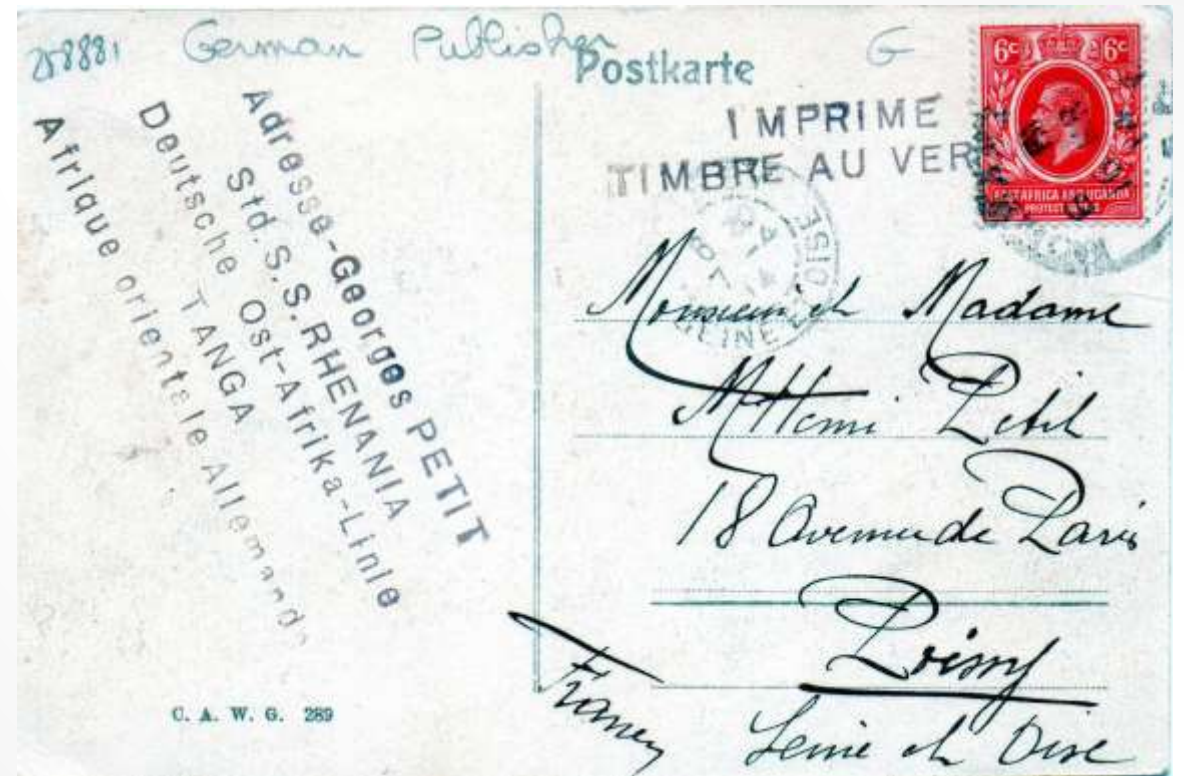 28881 German Publisher G
Postkarte
IMPRIME
TIMBRE AU VER
6c 6c
EAST AFRICA AND UGANDA
PROTECTORATES
Adresse-Georges PETIT
Std. S. S. RHENANIA
Deutsche Ost-Afrika-Linie
TANGA
Afrique orientale Allemande
SEINE OISE
Monsieur et Madame
M Henri Petit
18 Avenue de Paris
Poissy
Seine et Oise
France
C. A. W. G. 289